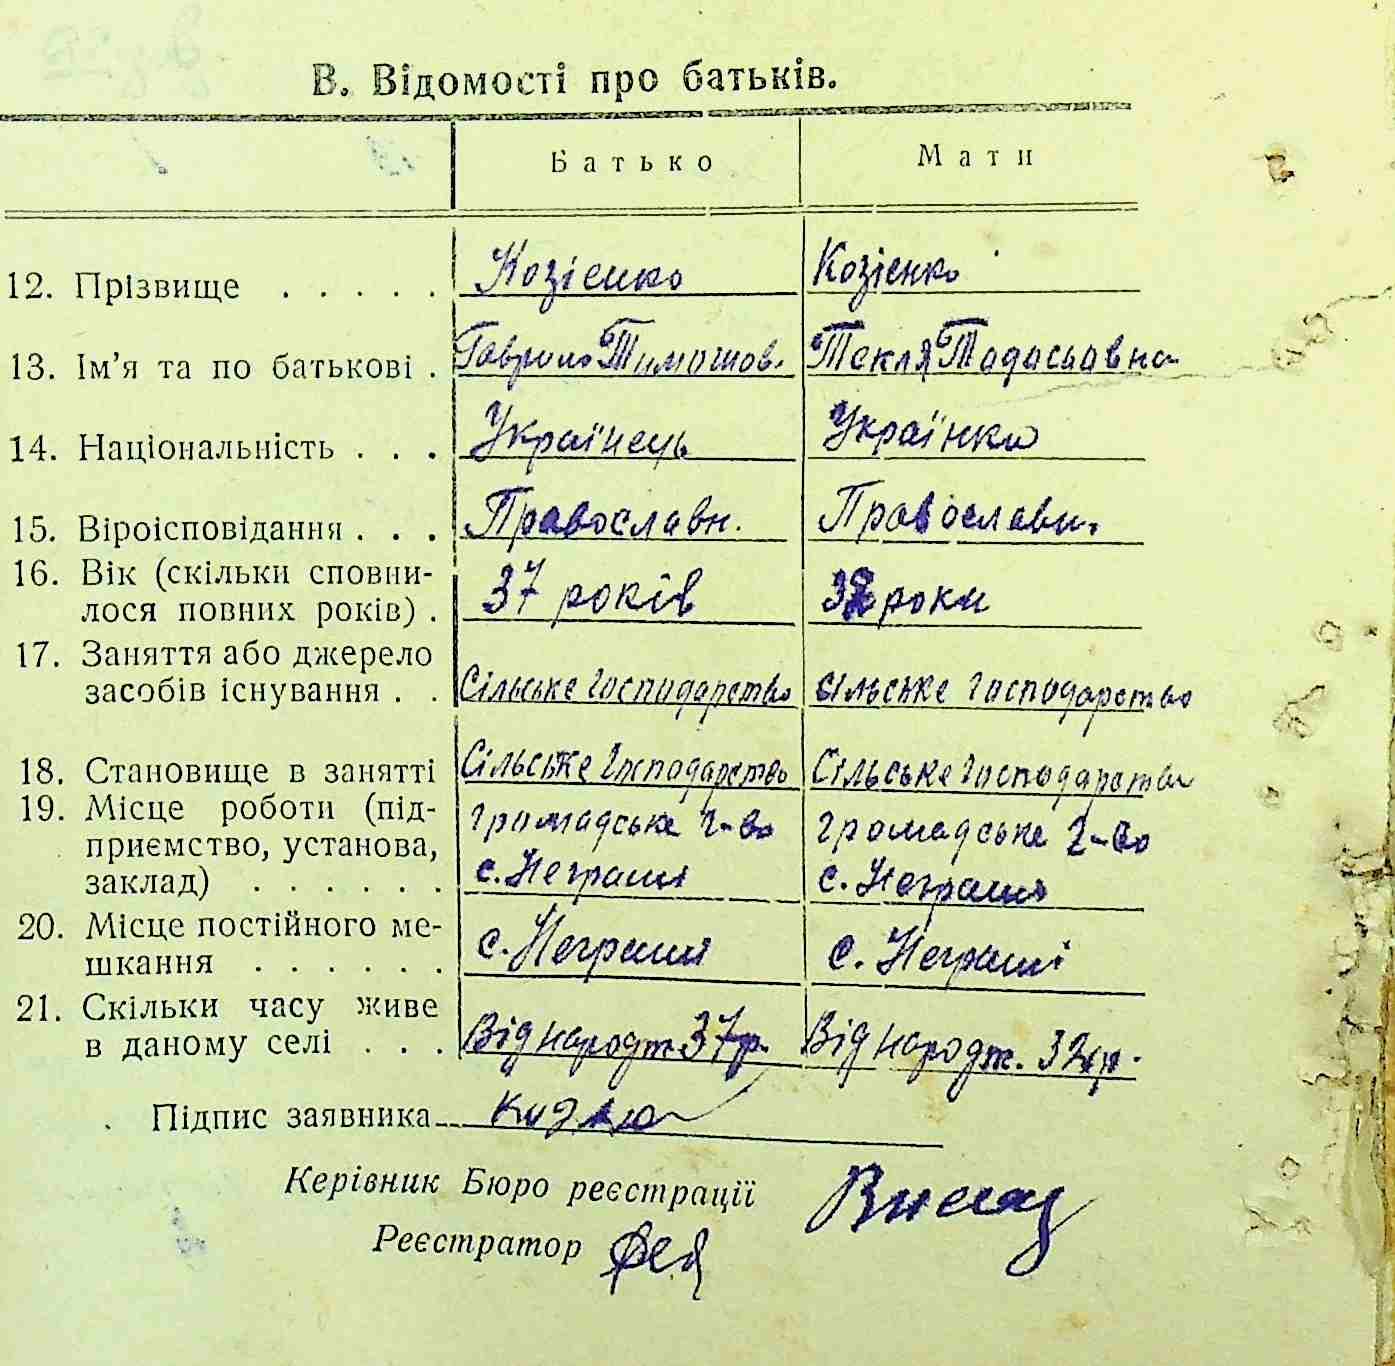 В. Відомості про батьків.
Батько Мати
12. Прізвище . . . . . Козієнко Козієнко
13. Ім’я та по батькові . Гаврило Тимошов. Текля Тадасьавна
14. Національність . . . Українець Українка
15. Віроісповідання . . . Православн. Православн.
16. Вік (скільки сповни-
лося повних років) . 37 років 32 роки
17. Заняття або джерело
засобів існування . . Сільське господарство сільське господарство
18. Становище в занятті Сільське господарство Сільське господарство
19. Місце роботи (під- громадське г-во громадське г-во
приємство, установа,
заклад) . . . . . . с. Неграші с. Неграші
20. Місце постійного ме-
шкання . . . . . . с. Неграші с. Неграші
21. Скільки часу живе
в даному селі . . . Від народж. 37 р. Від народж. 32 р.
Підпис заявника
Керівник Бюро реєстрації
Реєстратор